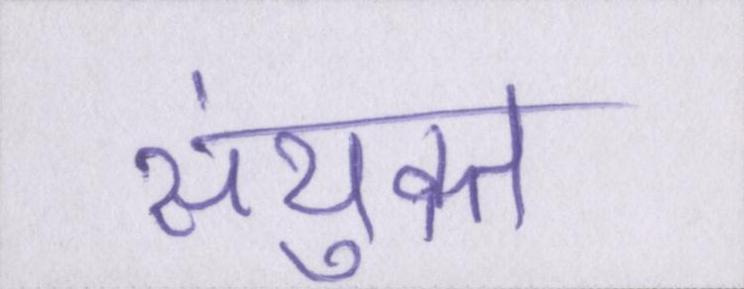 संयुक्त